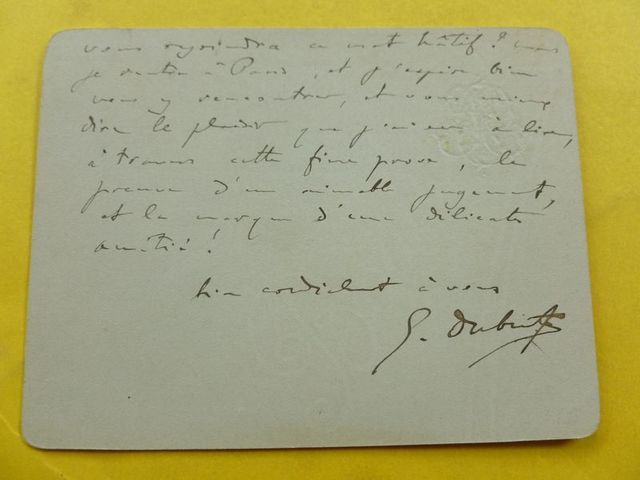 vous rejoindra ce mot hâtif ? mais
je rentre à Paris, et j'espère bien
vous y rencontrer, et vous mieux
dire le plaisir que j'ai eu à lire,
à travers cette fine prose, la
preuve d'un aimable jugement,
et la marque d'une délicate
amitié !
bien cordialement à vous
G. Dubuf